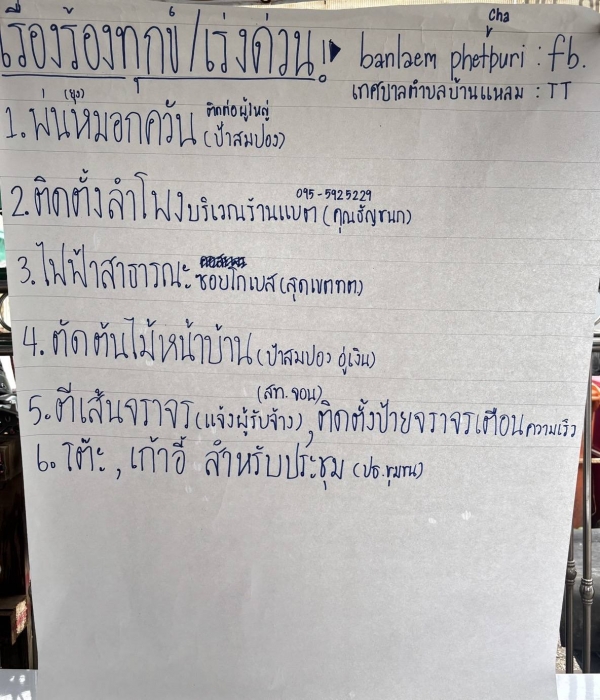 เรื่องร้องทุกข์/เร่งด่วน!
Cha
banlaem phetpuri : fb.
เทศบาลตำบลบ้านแหลม : TT
1. พ่นหมอกควัน (ยุง) ติดต่อผู้ใหญ่ (ป้าสมปอง)
2. ติดตั้งลำโพงบริเวณร้านแบตา 095-5925229 (คุณธัญชนก)
3. ไฟฟ้าสาธารณะ ซอยโกเบส (สุดเขตทต)
4. ตัดต้นไม้หน้าบ้าน (ป้าสมปอง อู่เงิน)
(สท. จอน)
5. ตีเส้นจราจร (แจ้งผู้รับจ้าง), ติดตั้งป้ายจราจรเตือนความเร็ว
6. โต๊ะ, เก้าอี้ สำหรับประชุม (ปธ.ชุมชน)